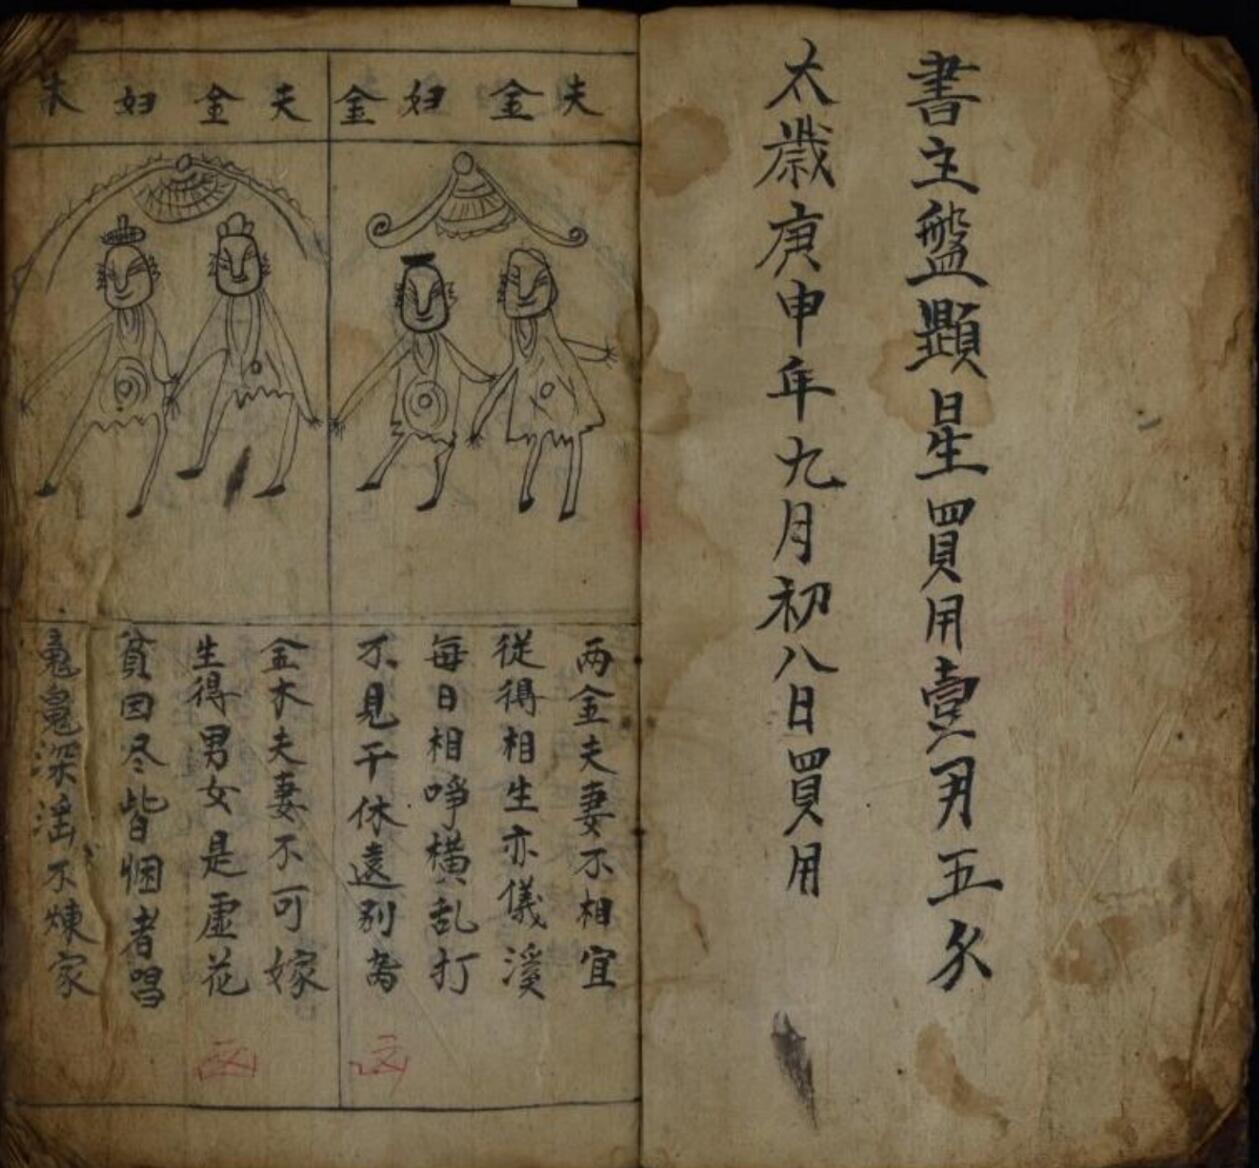 書主盤顕星買用壹月五欠
太歲庚申年九月初八日買用
夫金妇金
兩金夫妻不相宜
從得相生亦儀溪
每日相哮橫乱打
不見干休遠別為
凶
夫金妇木
金木夫妻不可嫁
生得男女是虛花
貧困尽皆悃者唱
深滛不煉家
凶